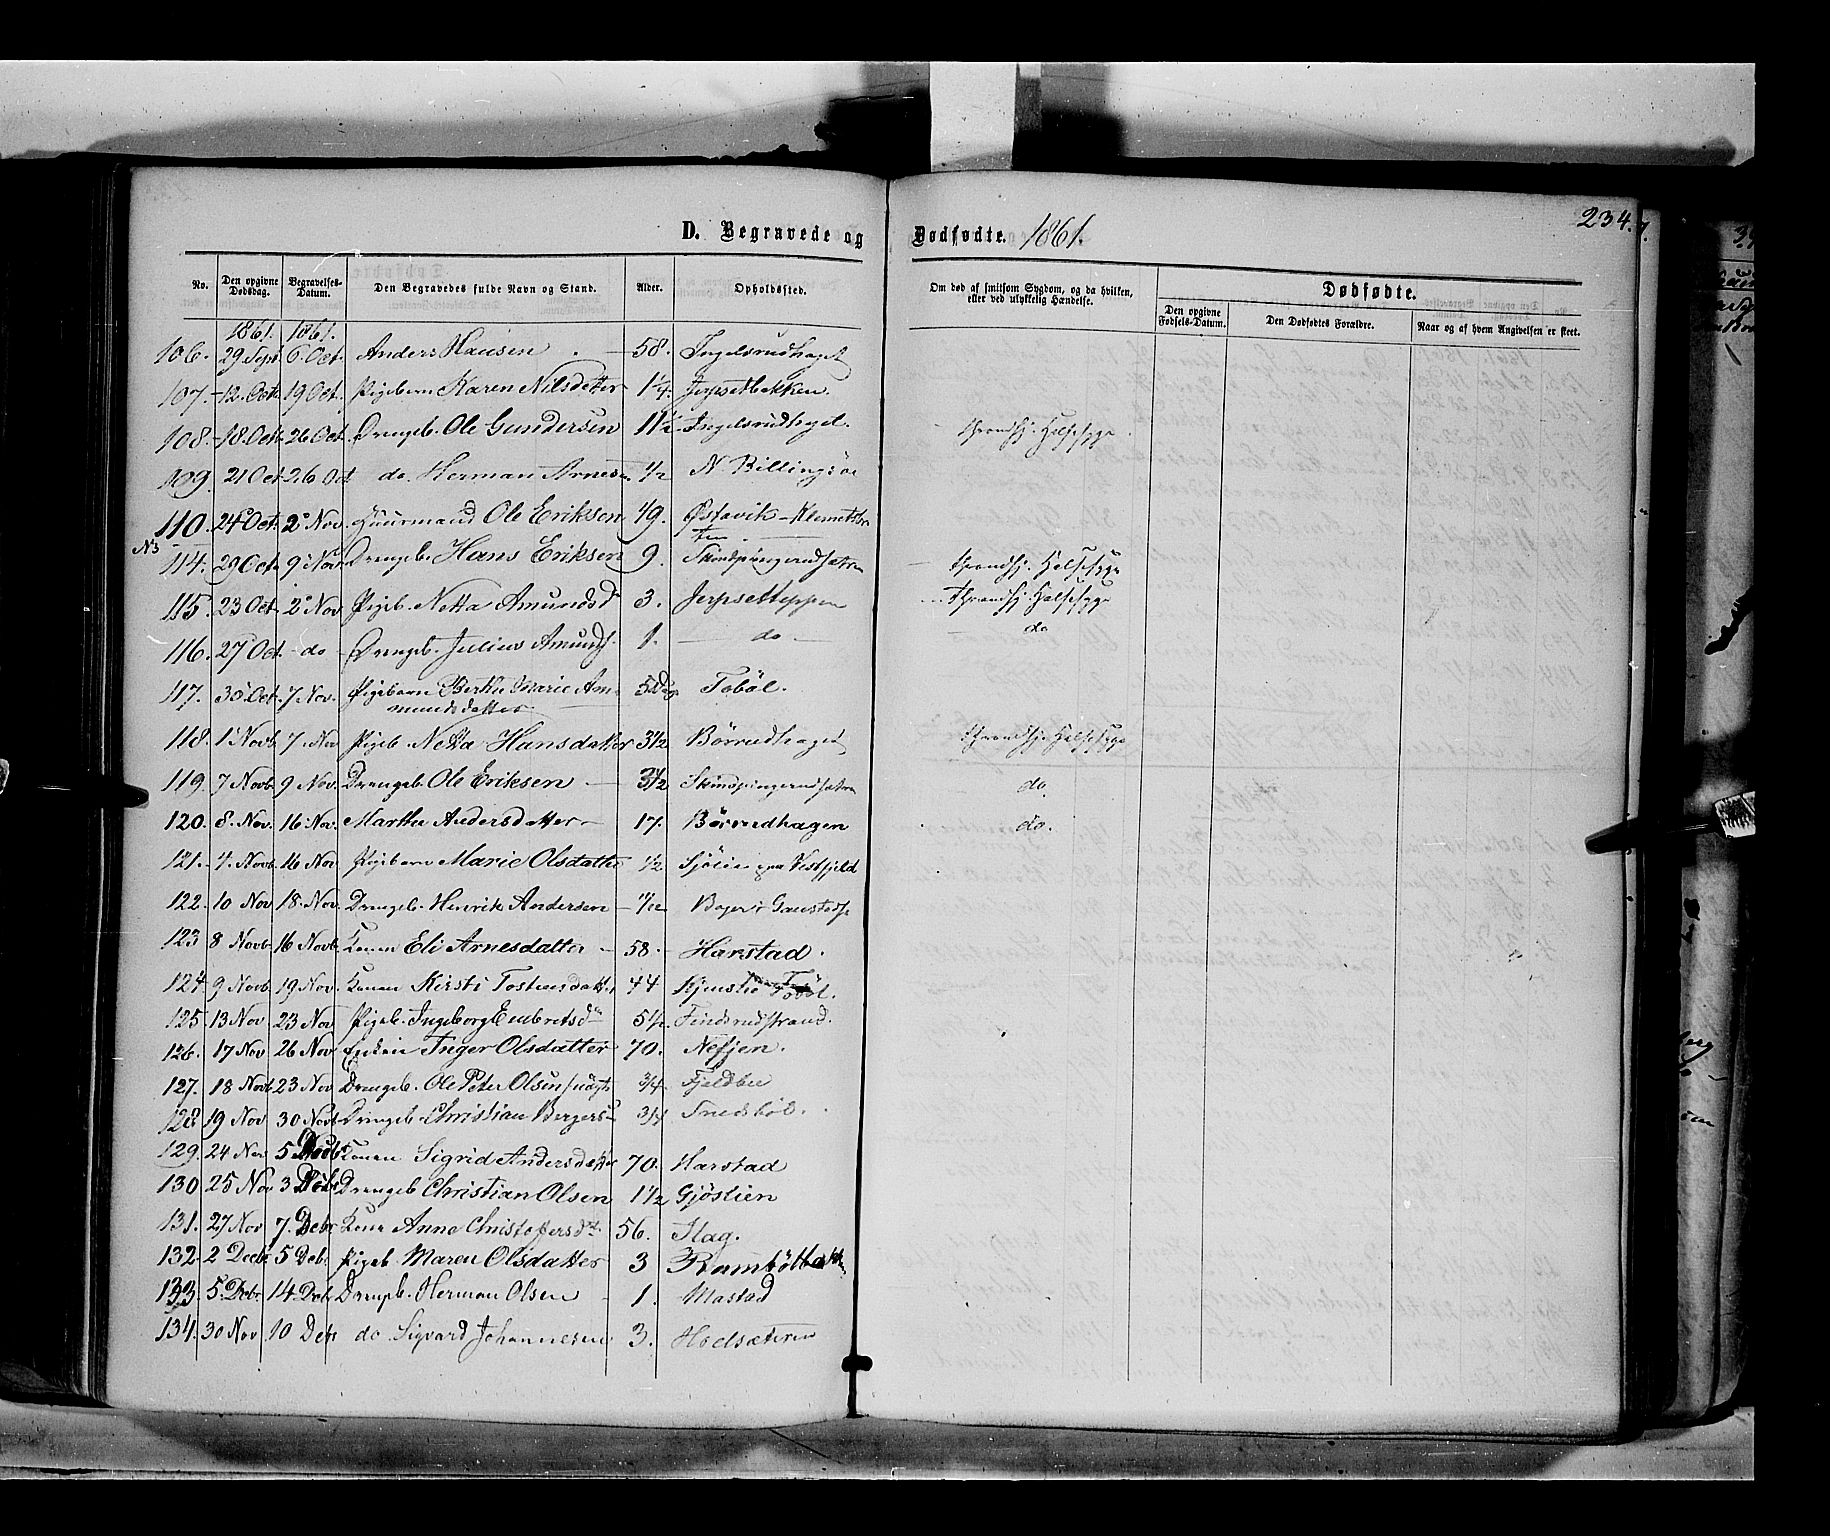 234.
D. Begravede og Dødfødte. 1861.
No. Den opgivne Dødsdag. Begravelses-Datum. Den Begravedes fulde Navn og Stand. Alder. Opholdssted. Om død af smitsom Sygdom, og da hvilken, eller ved ulykkelig Hændelse. Dødfødte.
Den opgivne Fødsels-Datum. Den Dødfødtes Forældre. Naar og af hvem Angivelsen er skeet.
1861. 1861.
106. 29 Sept 6 Oct. Anders Hansen 58. Ingelsrudhaget
107. 12. Octr 19 Oct. Pigebarn Karen Nilsdatter 1 1/4. Jerpsetbakken.
108. 18. Octr 26 Oct. Drengeb. Ole Gundersen 11 1/2 Ingelsrudhaget. Halsesyge
109. 21 Oct. 26 Oct do. Herman Arnesen 1/2 N. Billingsøe
110. 24 Oct. 2 Nov. Huusmand Ole Eriksen 49. Østavik-Klemetts
N3
114. 29 Oct. 9 Nov. Drengeb. Hans Eriksen 9. Halsesyge
115. 23 Oct. 2 Nov Pigeb. Netta Amundsd 3. Jerpsetteppen Halsesyge
116. 27 Oct. do Drengeb. Julius Amunds. 1. do do
117. 30 Oct. 7 Nov. Pigebarn Berthe Marie Am-
mundsdatter 5 Dage Tobøl.
118. 1 Novb. 7 Nov Pigeb Netta Hansdatter 3 1/2 Børrudhaget Halsesyge
119. 7 Novb. 9 Nov. Drengeb. Ole Eriksen 3 1/2 do.
120. 8. Nov. 16 Nov. Marthe Andersdatter 17. Børrudhagen do.
121. 4. Novb. 16 Nov Pigebarn Marie Olsdatter 1/2 Vestfjeld
122. 10 Nov 18. Nov. Drengeb. Henrik Andersen 1/12
123 8 Novb. 16 Novb. Konen Eli Arnesdatter 58. Harstad.
124. 9 Novb. 19 Nov. Konen Kirsti Tostensdatt. 44 Tobøl.
125. 13 Nov 23 Nov Pigeb. Ingeborg Embretsd 5 1/2. Findsrudstrand.
126. 17 Nov 26 Nov Enken Inger Olsdatter 70. Nefjen.
127. 18 Novb 23 Nov Drengeb. Ole Peter Olsen 3/4 Fjeldbu
128 19 Nov 30 Novb Drengeb. Christian Bergers 3/4
129. 24 Nov 5 Konen Sigrid Andersdatter 70. Harstad
130 25 Nov 3 Debr Drengeb Christian Olsen 1 1/2 Gjøstien
131. 27 Nov 7. Debr Kone Anne Christoffersdt. 56. Hag.
132 2 Decbr 5 Debr Pigeb Maren Olsdatter 3
133. 5. Debr. 14. Debr Drengeb. Herman Olsen 1. Mastad
134. 30 Nov 10 Debr do Sigvard Johannesen 3. Hodsæteren